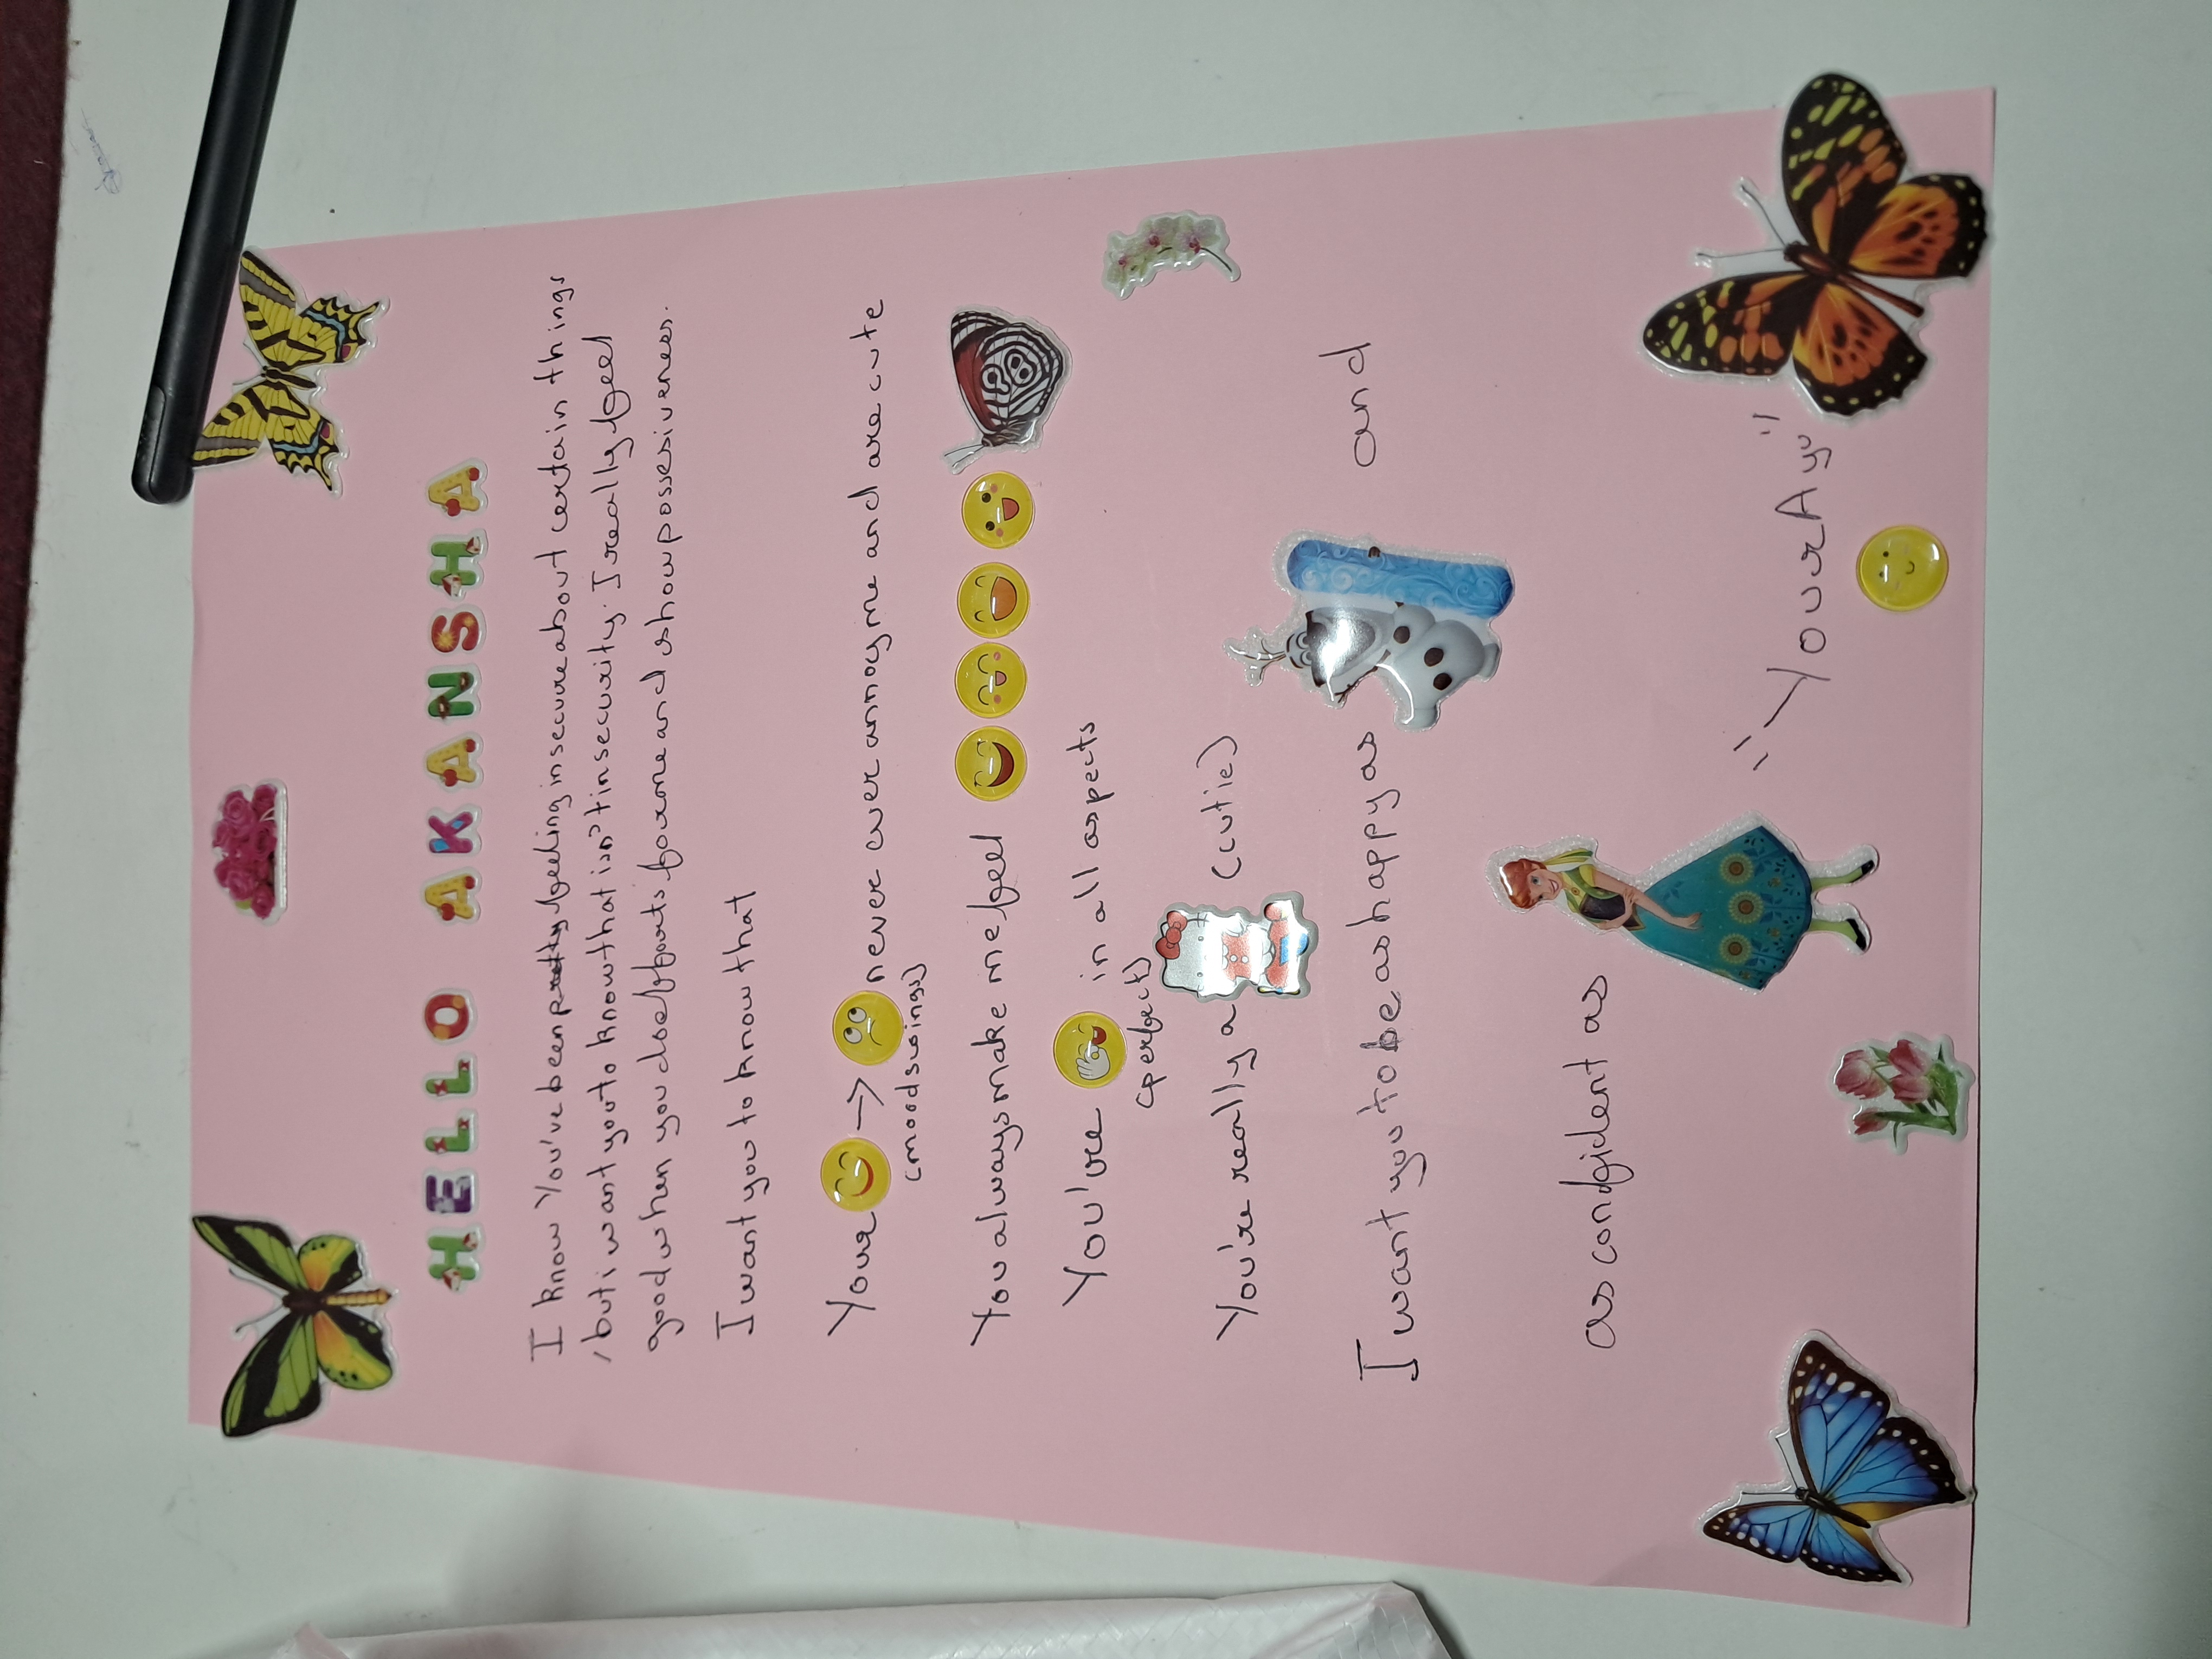 HELLO AKANSHA
I know You've been pretty feeling insecure about certain things
, but i want you to know that isn't insecurity. I really feel
good when you do effourts for me and show possesiveness.
I want you to know that
Your never ever annoy me and are cute
(mood swings)
You always make me feel
You're in all aspects
(perfect)
You're really a (cutie)
I want you to be as happy as and
as confident as
"Your Ayu"